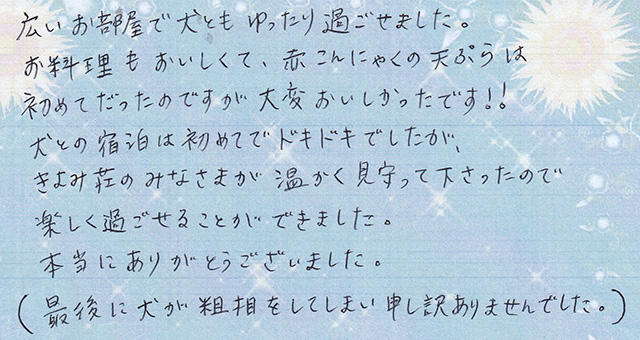 広いお部屋で犬ともゆったり過ごせました。
お料理もおいしくて、赤こんにゃくの天ぷらは
初めてだったのですが大変おいしかったです!!
犬との宿泊は初めてでドキドキでしたが、
きよみ荘のみなさまが温かく見守って下さったので
楽しく過ごせることができました。
本当にありがとうございました。
(最後に犬が粗相をしてしまい申し訳ありませんでした。)